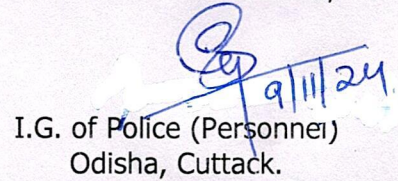 9/11/24
I.G. of Police (Personnel)
Odisha, Cuttack.